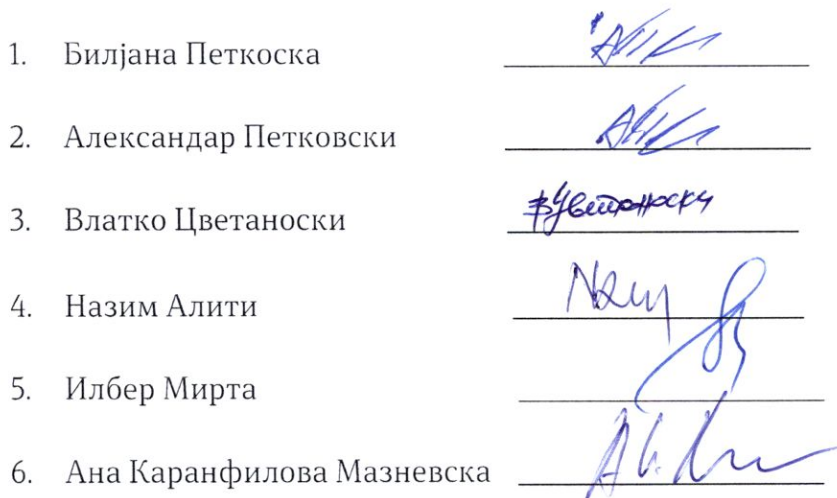 1. Билјана Петкоска
2. Александар Петковски
3. Влатко Цветаноски
4. Назим Алити
5. Илбер Мирта
6. Ана Каранфилова Мазневска